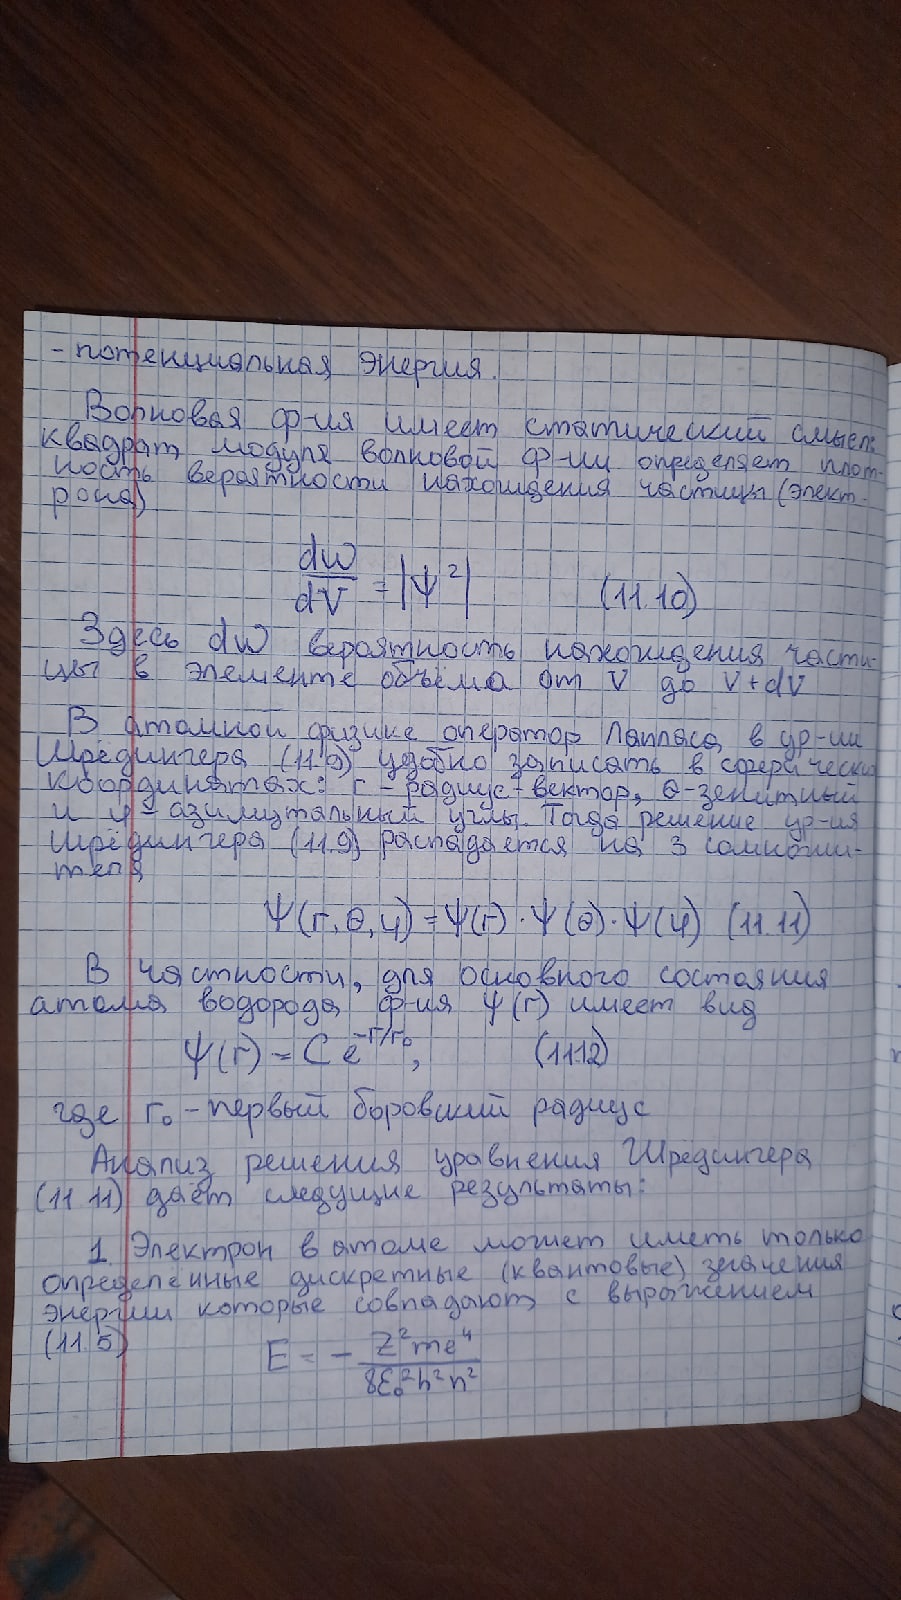 - потенциальная энергия.
Волновая ф-ия имеет статический смысл:
квадрат модуля волновой ф-ии определяет плот-
ность вероятности нахождения частицы (элект-
рона)
dw/dV = |Ψ²| (11.10)
Здесь dw вероятность нахождения части-
цы в элементе объёма от V до V+dV
В атомной физике оператор Лапласа в ур-ии
Шрёдингера (11.9) удобно записать в сферически
координатах: r - радиус-вектор, θ-зенитный
и φ-азимутальный углы. Тогда решение ур-ия
Шрёдингера (11.9) распадается на 3 сомножи-
теля
Ψ(r, θ, φ) = Ψ(r) · Ψ(θ) · Ψ(φ) (11.11)
В частности, для основного состояния
атома водорода ф-ия Ψ(r) имеет вид
Ψ(r) = C e^(-r/r₀), (11.12)
где r₀ - первый боровский радиус
Анализ решения уравнения Шрёдингера
(11.11) даёт следущие результаты:
1. Электрон в атоме может иметь только
определённые дискретные (квантовые) значения
энергии которые совпадают с выражением
(11.5)
E = - Z²me⁴/8ε₀²h²n²